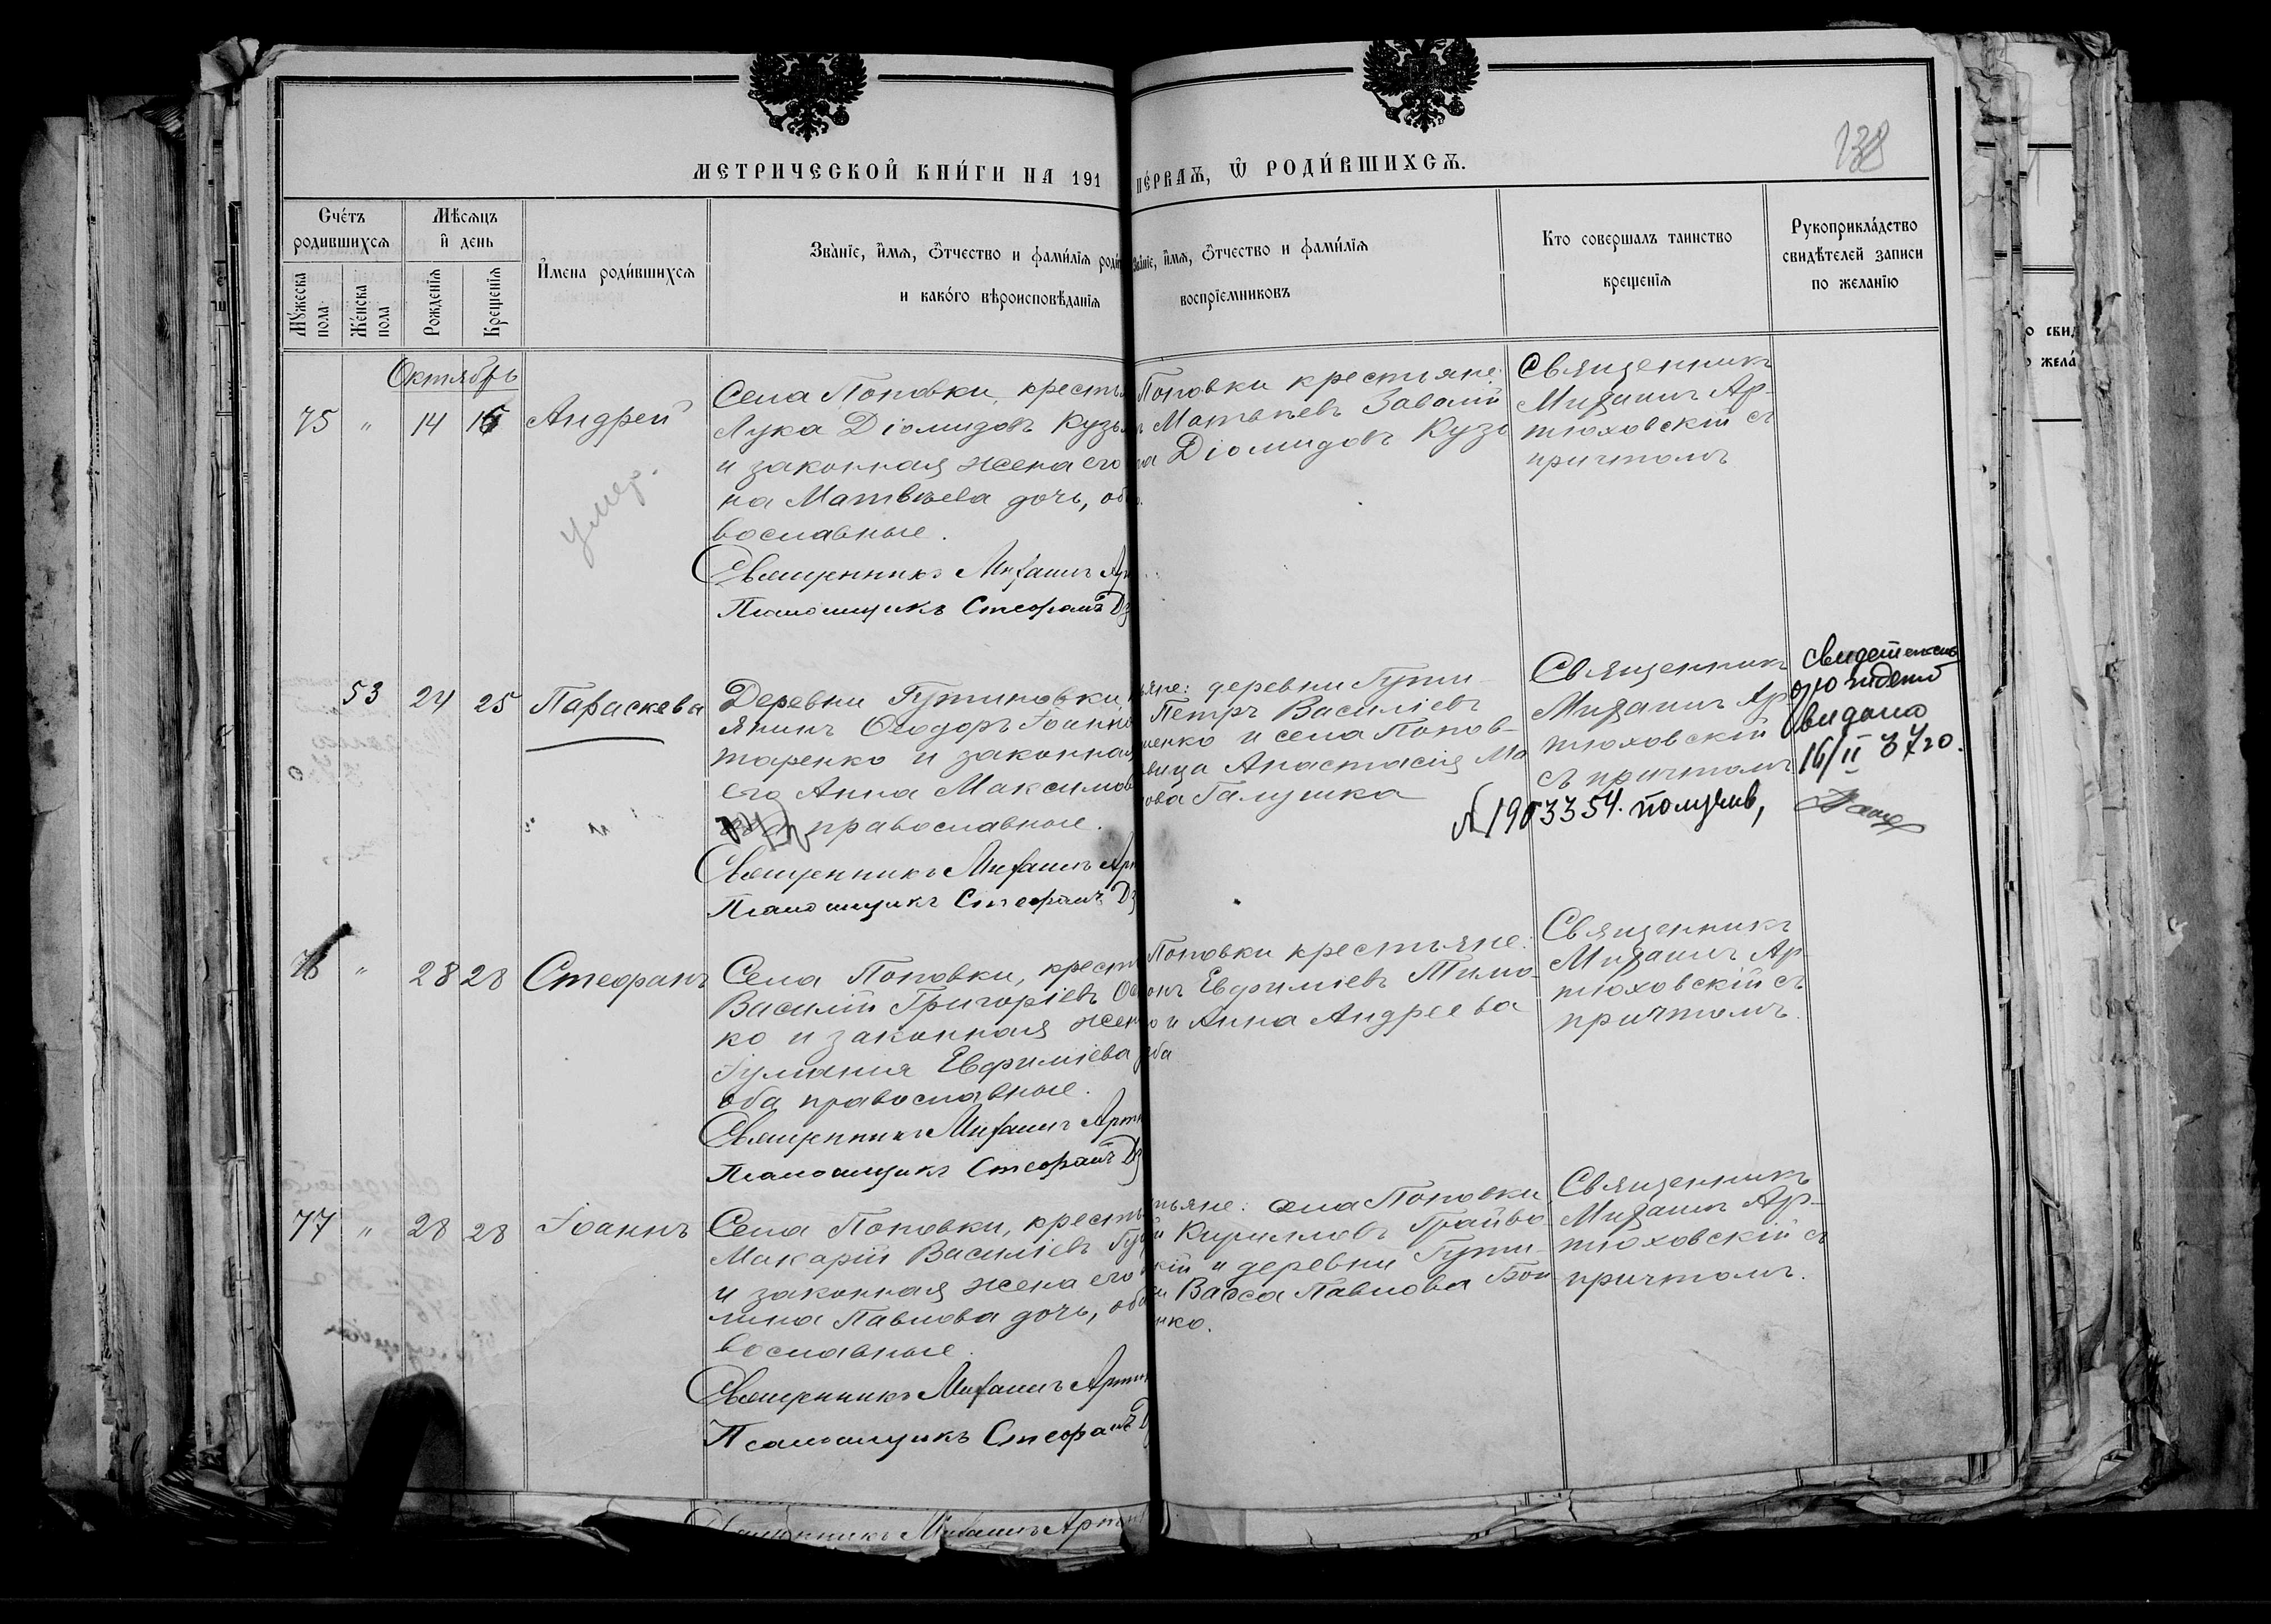 138
МЕТРИЧЕСКОЙ КНИ́ГИ НА 191
ПЕ́РВАѦ, Ѿ РОДИ́ВШИХСѦ.
Сче́тъ родившихсѧ
Мѣсѧцъ и҆ день
И҆мена роди́вшихсѧ
Зва̀нїе, и҆́мѧ, ѻ҆́тчество и фами́лїѧ роди
и како́го вѣроисповѣ́данїѧ
Зва̀нїе, и҆́мѧ, ѻ҆́тчество и фами́лїѧ
воспрїемниковъ
Кто совершалъ таинство
крещенїѧ
Рукоприкла́дство
свидѣ́телей записи
по желанїю
Му́жеска пола
Же́нска пола
Рожденїѧ
Крещенїѧ
Октябрь
75 " 14 15 Андрей
умер.
Села Поповки, кресть
Лука Діомидовъ Кузь
и законная жена его
на Матвѣева дочь, об
вославные.
Священникъ Михаилъ Ар
Псаломщикъ Стефанъ Дз
Поповки крестьяне:
Матвѣевъ Завалій
на Діомидовъ Кузь
Священникъ
Михаилъ Ар-
тюховскій съ
причтомъ
53 24 25 Параскева
Деревни Гутировки,
янинъ Ѳеодоръ Іоанно
таренко и законная
его Анна Максимов
православные.
Священникъ Михаилъ Арт
Псаломщикъ Стефанъ Дз
яне: деревни Гути-
Петръ Василіевъ
енко и села Попов-
вица Анастасія Ма
ова Галушка
Священникъ
Михаилъ Ар-
тюховскій
съ причтомъ
видано
16/II 37го.
№ 1903354. получив,
76 " 28 28 Стефанъ
Села Поповки, крест
Василій Григоріевъ
ко и законная жен
Іуліанія Евфиміева
оба православные.
Священникъ Михаилъ Арт
Псаломщикъ Стефанъ Дз
Поповки крестьяне:
онъ Евфиміевъ Тимо-
о и Анна Андреева
ба
Священникъ
Михаилъ Ар-
тюховскій съ
причтомъ.
77 " 28 28 Іоаннъ
Села Поповки, кресть
Макарій Василіевъ
и законная жена его
лина Павлова дочь, об
вославные.
Священникъ Михаилъ Артю
Псаломщикъ Стефанъ Д
тьяне: села Поповки
Кирилловъ Грайво
кій и деревни Гути-
и Васса Павлова Бон
нко.
Священникъ
Михаилъ Ар-
тюховскій съ
причтомъ.
Священникъ Михаилъ Артю